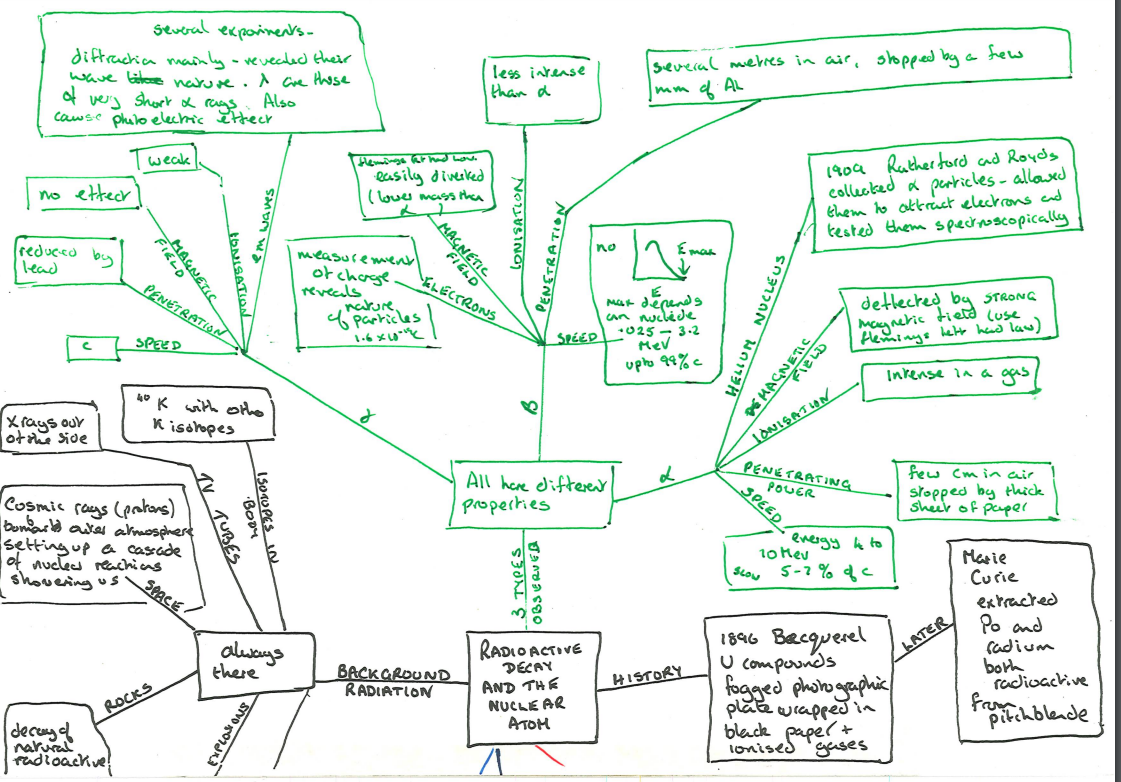 several experiments-
diffraction mainly - revealed their
wave like nature. λ are those
of very short α rays. Also
cause photoelectric effect
less intense
than α
several metres in air, stopped by a few
mm of AL
weak
no effect
reduced by
lead
c
MAGNETIC
FIELD
IONISATION
em waves
PENETRATION
SPEED
easily diverted
(lower mass than
α)
measurement
of charge
reveals
nature
of particles
MAGNETIC
FIELD
ELECTRONS
IONISATION
PENETRATION
SPEED
no
E max
E
max depends
on nuclide
.025 - 3.2
MeV
upto 99% c
1909 Rutherford and Royds
collected α particles - allowed
them to attract electrons and
tested them spectroscopically
deflected by STRONG
magnetic field (use
flemings left had law)
Intense in a gas
HELIUM NUCLEUS
MAGNETIC
FIELD
IONISATION
PENETRATING
POWER
SPEED
few cm in air
stopped by thick
sheet of paper
energy 4 to
10 Mev
slow 5-7% of c
γ
β
α
All have different
properties
3 TYPES
OBSERVED
Xrays out
of the side
40 K with otho
K isotopes
Cosmic rays (protons)
bombard outer atmosphere
setting up a cascade
of nuclear reactions
showering us
TV TUBES
ISOTOPES IN
BODY
SPACE
always
there
ROCKS
EXPLOSIONS
decay of
natural
radioactive
BACKGROUND
RADIATION
RADIOACTIVE
DECAY
AND THE
NUCLEAR
ATOM
HISTORY
1896 Becquerel
U compounds
fogged photographic
plate wrapped in
black paper +
ionised gases
LATER
Marie
Curie
extracted
Po and
radium
both
radioactive
from
pitchblende